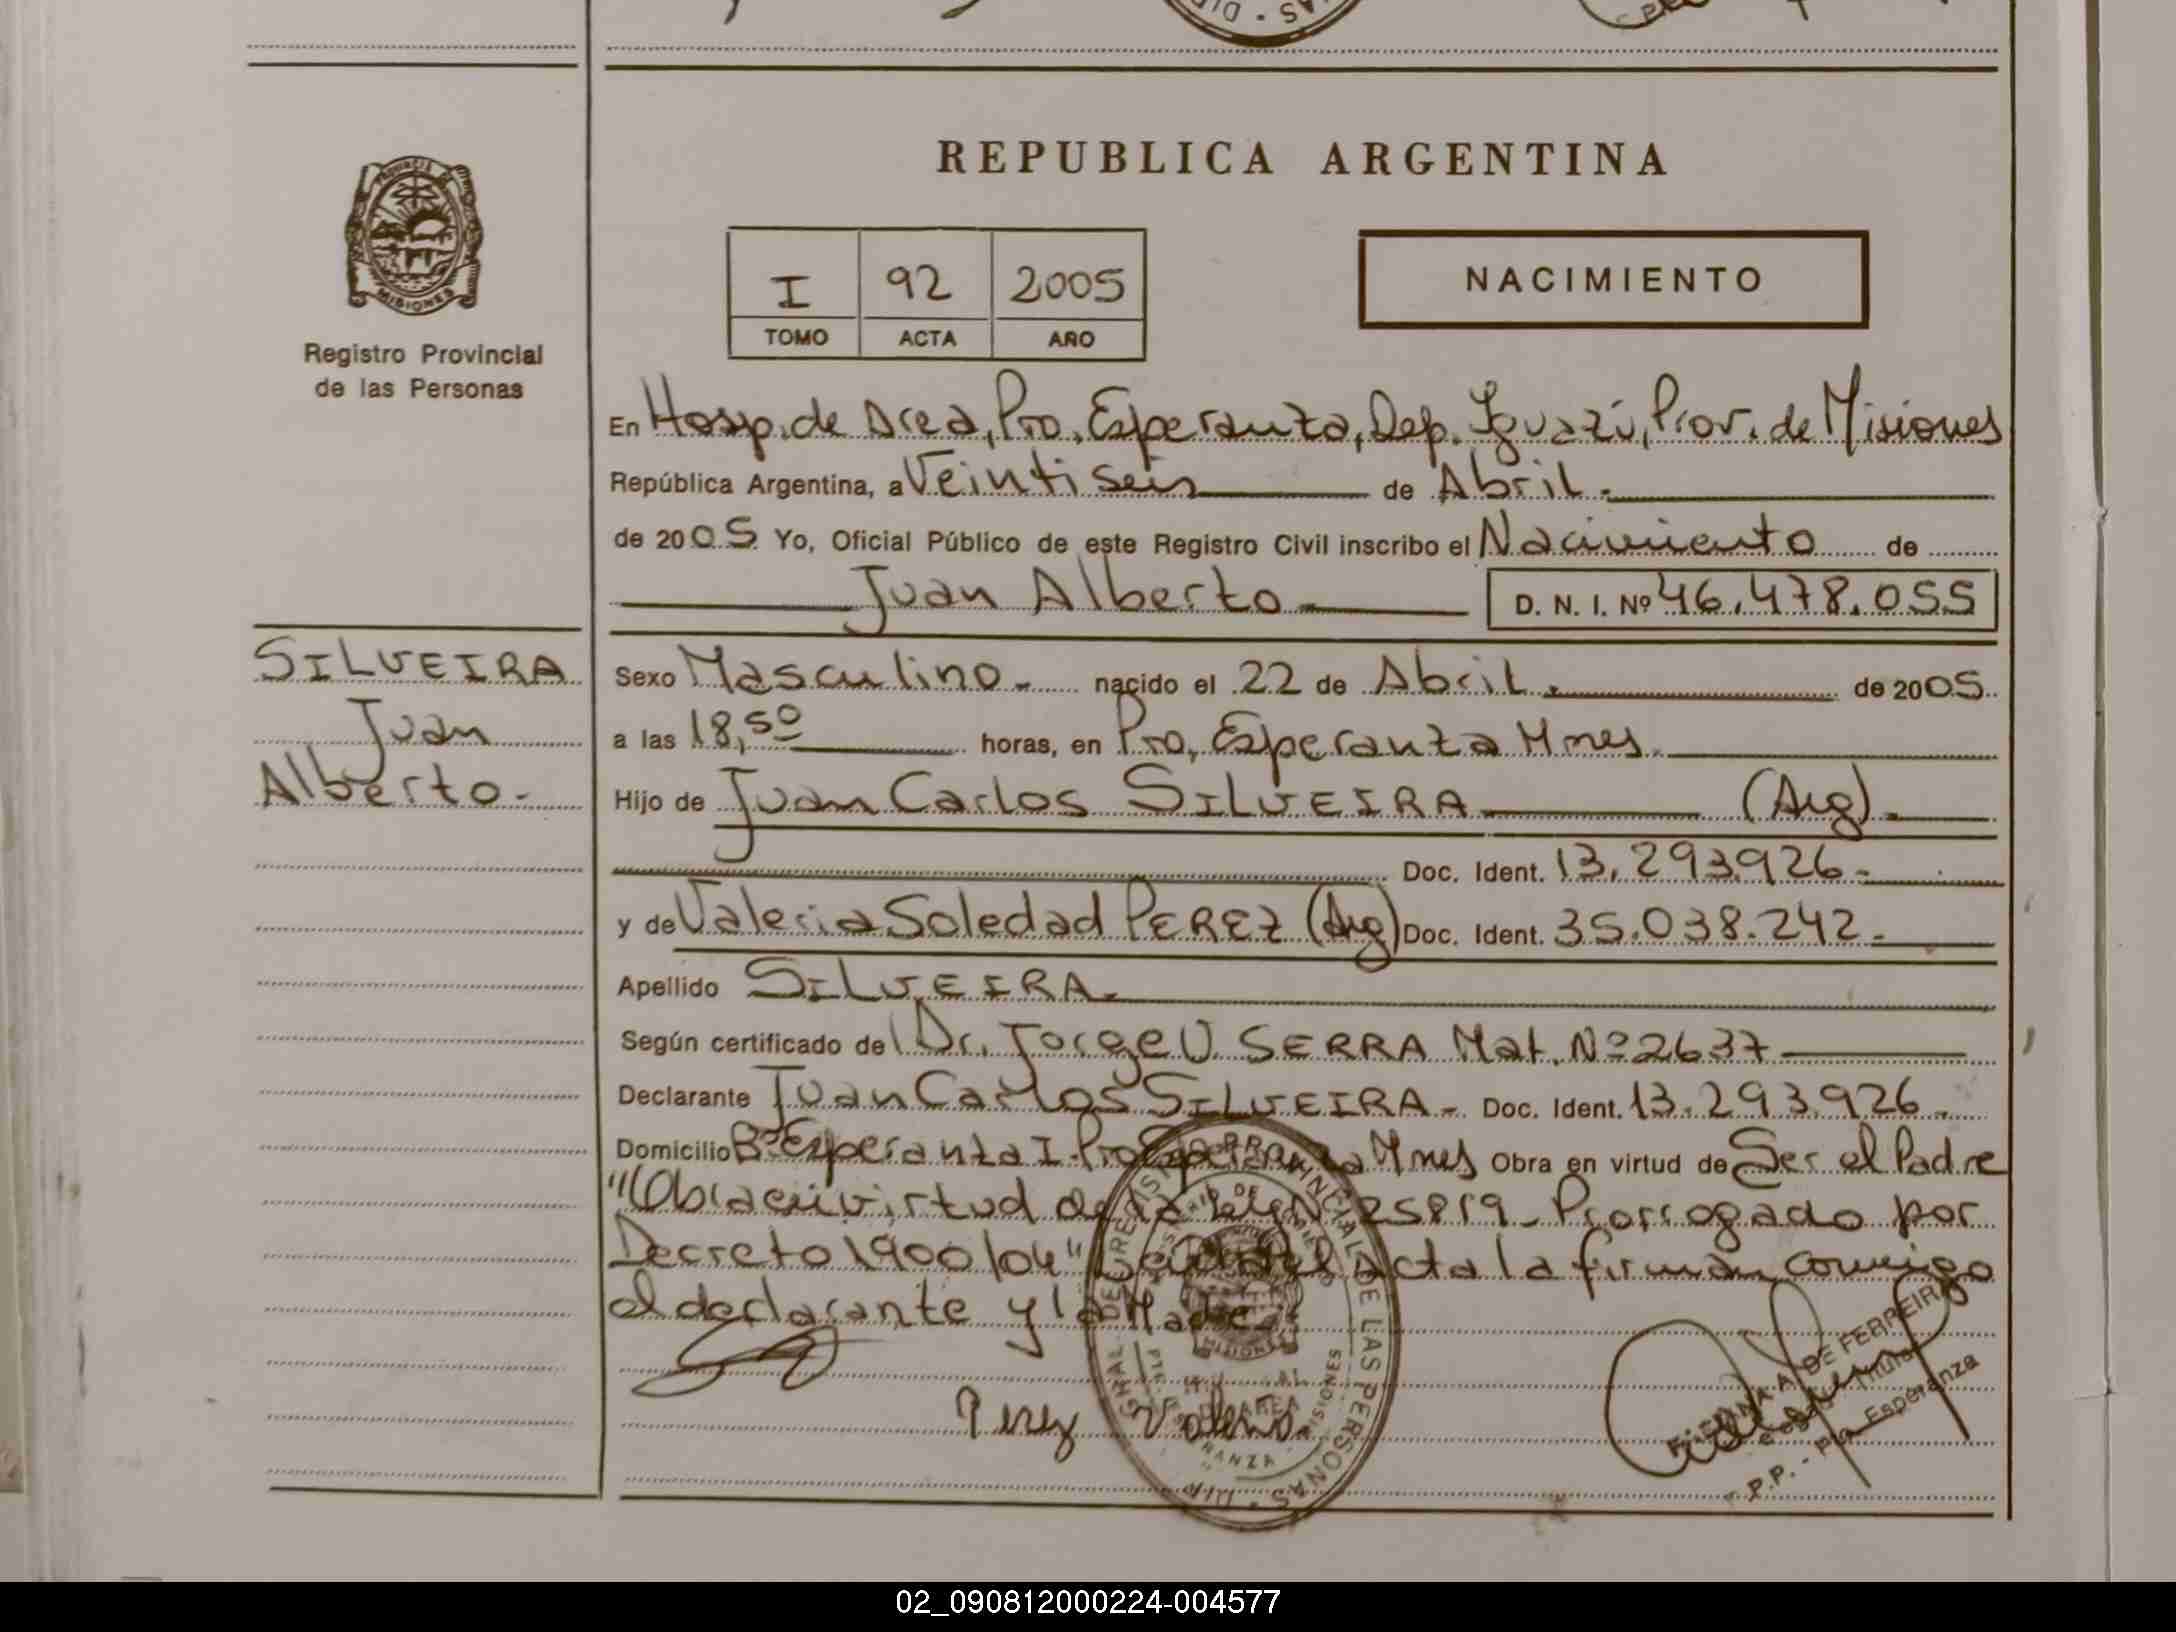 REPUBLICA ARGENTINA
PROVINCIA DE
MISIONES
Registro Provincial
de las Personas
I 92 2005
TOMO ACTA AÑO
NACIMIENTO
En Hosp. de Area, Pto. Esperanza, Dep. Iguazú, Prov. de Misiones
República Argentina, a Veintiseis de Abril.
de 2005 Yo, Oficial Público de este Registro Civil inscribo el Nacimiento de
Juan Alberto D. N. I. Nº 46.478.055
SILVEIRA
Juan
Alberto.-
Sexo Masculino.- nacido el 22 de Abril. de 2005
a las 18,50 horas, en Pto. Esperanza Mnes.
Hijo de Juan Carlos SILVEIRA (Arg).-
Doc. Ident. 13.293.926.-
y de Valeria Soledad PEREZ (Arg) Doc. Ident. 35.038.242.-
Apellido SILVEIRA.
Según certificado de Dr. Jorge U. SERRA Mat. Nº 2637
Declarante Juan Carlos SILVEIRA.- Doc. Ident. 13.293.926.-
Domicilio Bº Esperanza I. Pto Esperanza Mnes Obra en virtud de Ser el Padre
"Obra en virtud de la Ley Nº 25819_ Prorrogado por
Decreto 1900/04" Leída el Acta la firman conmigo
el declarante y la Madre.
Perez Valeria.
DE LAS PERSONAS
MISIONES
A. DE FERREIRA
Titular
Pto. Esperanza
02_090812000224-004577